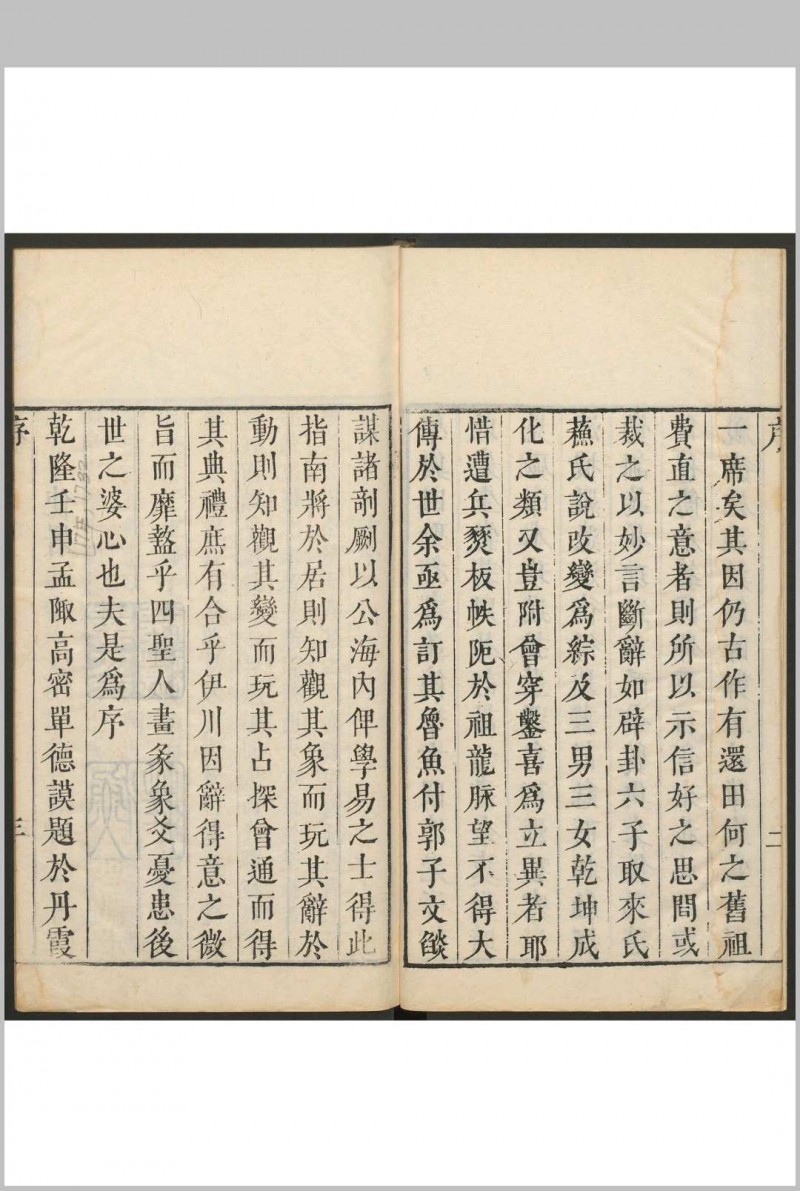 序
二
一席矣其因仍古作有還田何之舊祖
費直之意者則所以示信好之思問或
裁之以妙言斷辭如辟卦六子取來氏
蘓氏說改變爲綜及三男三女乾坤成
化之類又豈附會穿鑿喜爲立異者耶
惜遭兵燹板帙阨於祖龍脉望不得大
傳於世余亟爲訂其魯魚付郭子文燄
謀諸剞劂以公海内俾學易之士得此
指南將於居則知觀其象而玩其辭於
動則知觀其變而玩其占探會通而得
其典禮庶有合乎伊川因辭得意之微
旨而靡盭乎四聖人畫彖象爻憂患後
世之婆心也夫是爲序
乾隆壬申孟陬高密單德謨題於丹霞
序
三